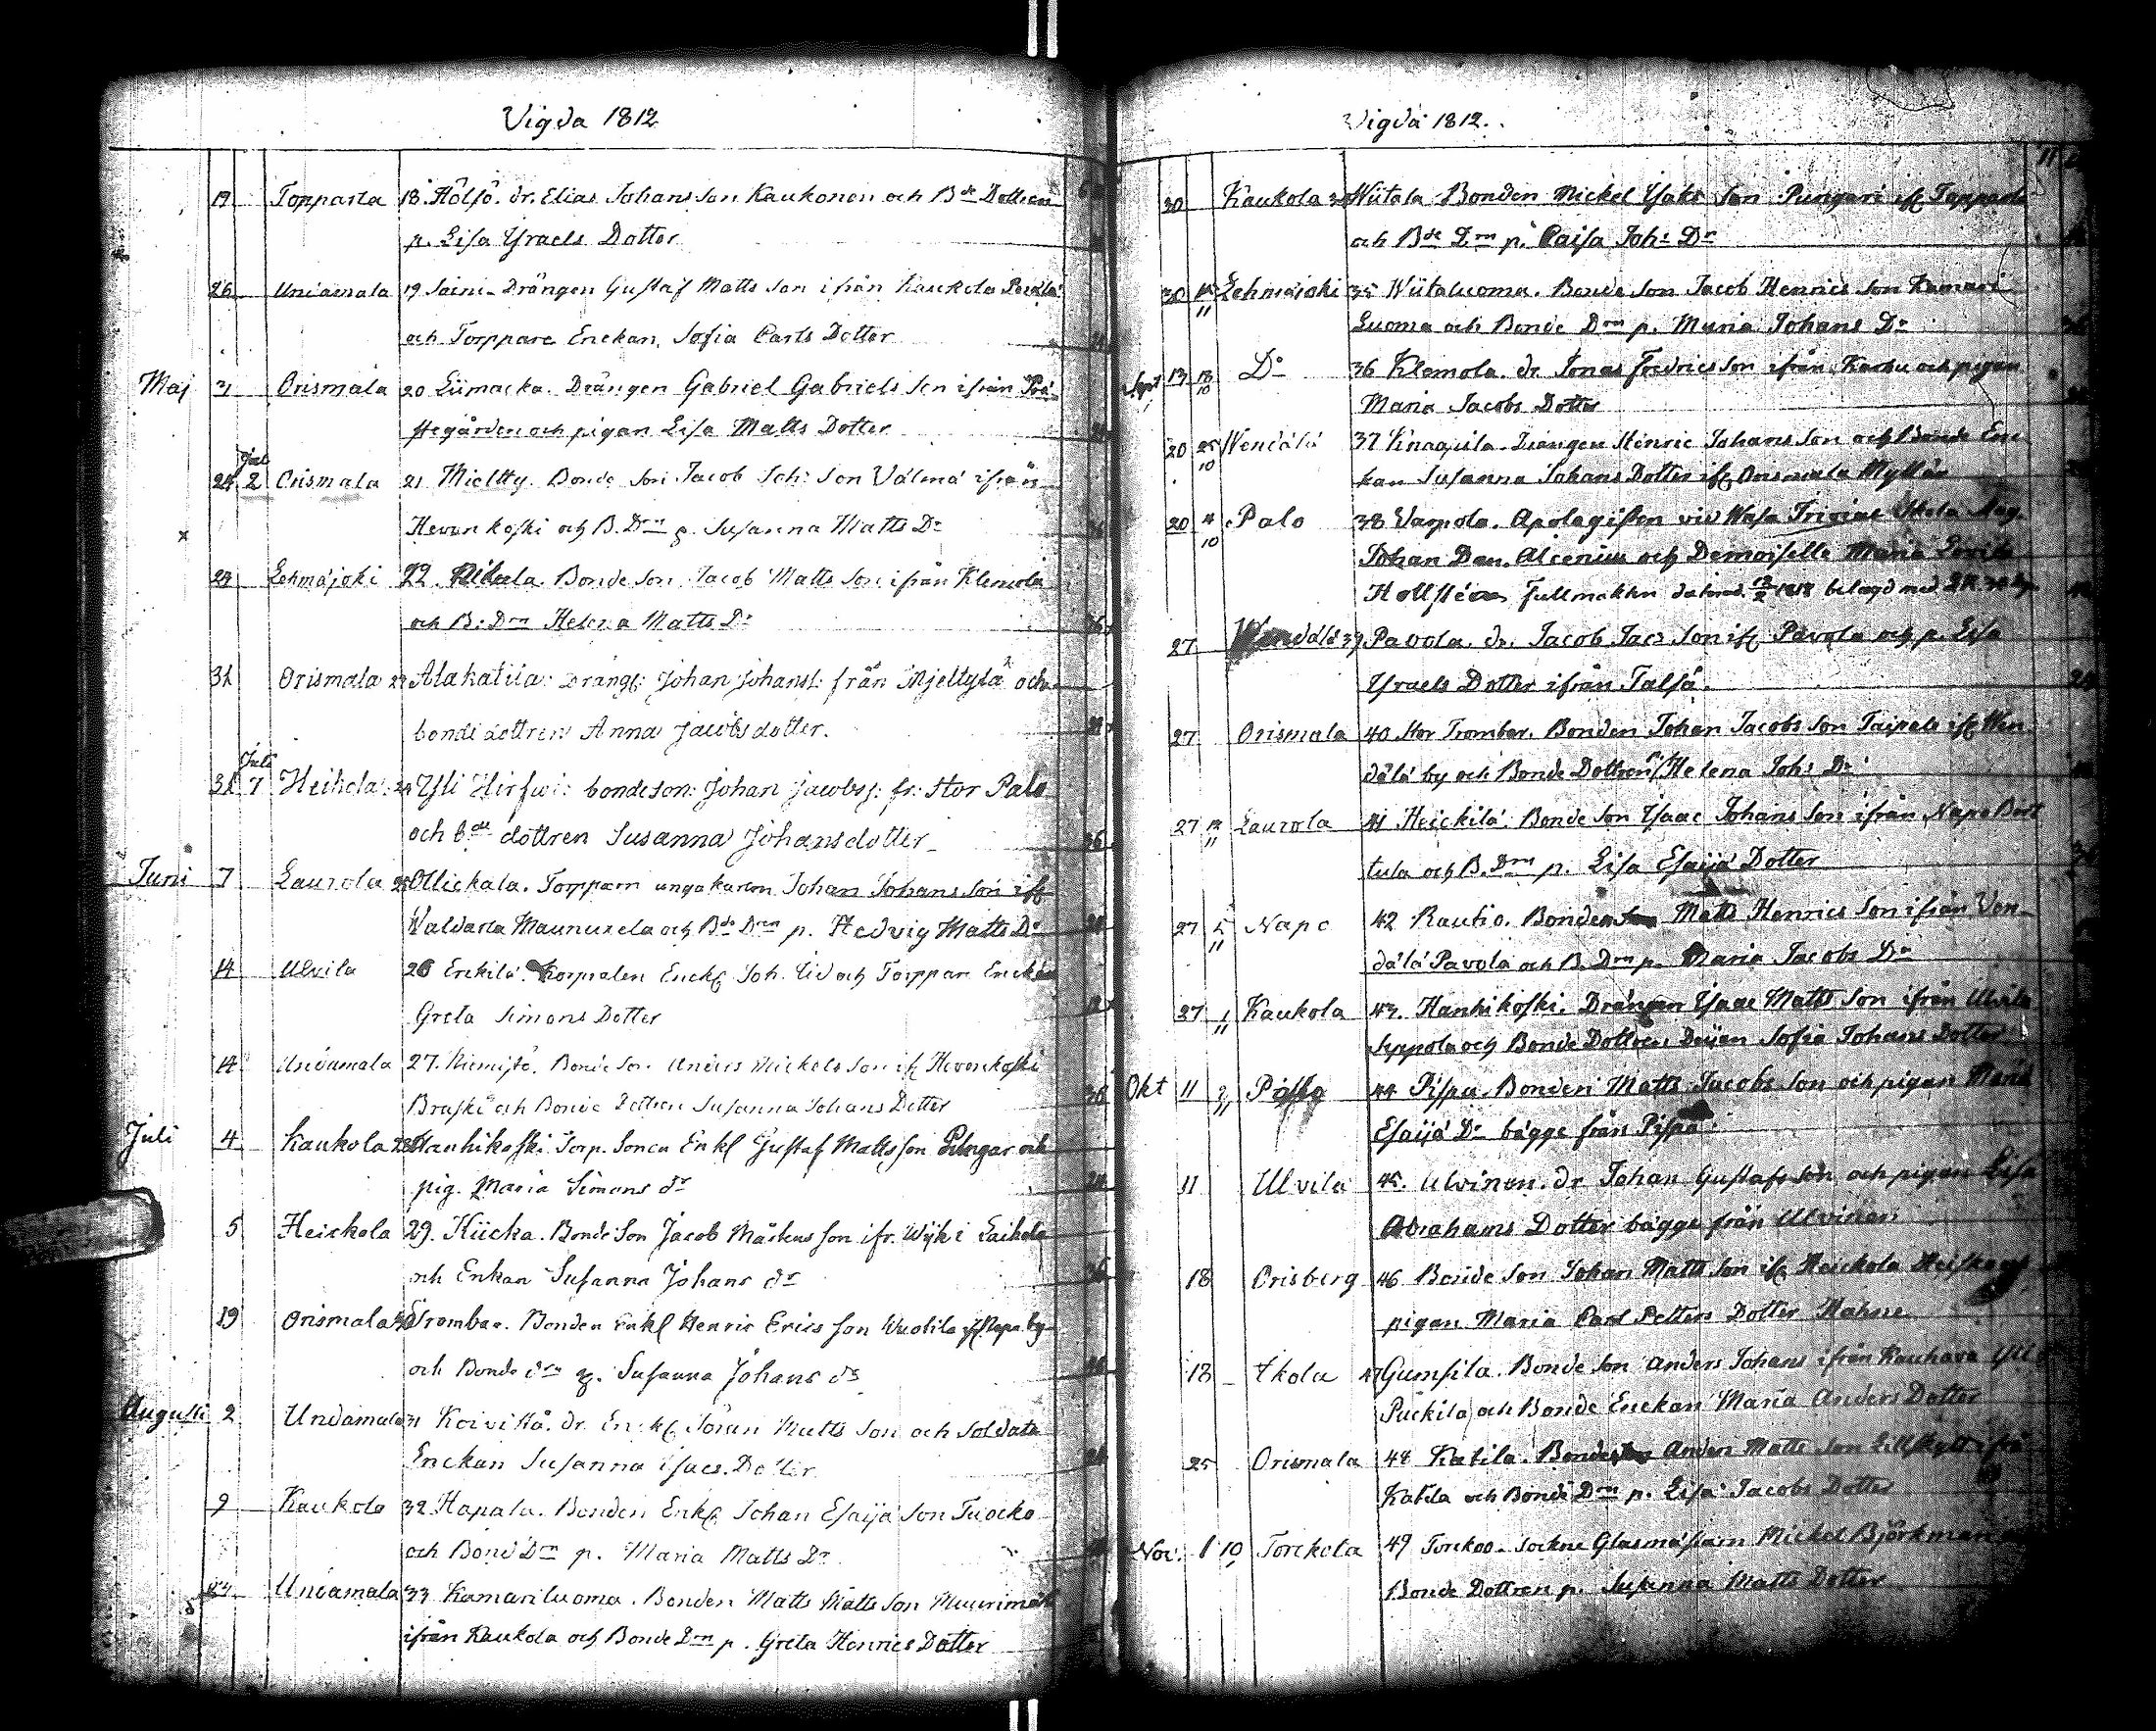 Vigda 1812
19 Topparla 18. Hölsö. dr. Elias Johans Son Kaukonen och Bde Dottren
p. Lisa Ysraels Dotter
26 Undamala 19 Saini. Drängen Gustaf Matts Son ifrån Kaukola
och Torppare Enckan, Sofia Carls Dotter
Maj 31 Orismala 20 Liimacka. Drängen Gabriel Gabriels Son ifrån Prä-
stegården och pigan Lisa Matts Dotter
24 2 Orismala 21 Mieltty Bonde Son Jacob Joh: Son Välmä ifrån
Hevonkoski och B. Drn p. Susanna Matts Dr
24 Lehmäjoki 22. Bonde Son Jacob Matts Son ifrån Klemola
och B: Drn Helena Matts Dr
31 Orismala 23 Alakatila: Dräng: Johan Johans: från Mjeltylä och
bonde dottren Anna Jacobs dotter.
Juli
31 7 Heikola 24 Yli Hirfwi: bondeson: Johan Jacobs: fr: Stor Palo
och bde dottren Susanna Johans dotter
Juni 7 Laurola 25 Ollickala. Torparn ungakarlen Johan Johans Son
Waldarla Maunuxela och Bde Drn p. Hedvig Matts Dr
14 Ulvila 26 Erckilä. Korpralen Enckl Joh. Lid och Torppare Enckan
Greta Simons Dotter
14 Undamala 27. Niemistö. Bonde Son Anders Mickels Son Hevonkoski
Braski och Bonde Dottren Susanna Johans Dotter
Juli 4 Kaukola 28 Hanhikoski Torp. Sonen Enkl Gustaf Matts Son Pungar och
pig. Maria Simons dr
5 Heickola 29. Kiicka. Bonde Son Jacob Markus Son ifr. Wijk i Laihela
och Enkan Susanna Johans dr
19 Orismala 30 Trombar. Bonden Enkl Henric Erics Son Wuotila Napo by
och Bonde drn p. Susanna Johans dr
Augusti 2 Undamala 31 Koivistå. dr. Enckl Jöran Matts Son och Soldats
Enckan Susanna Isacs Dotter
9 Kaukola 32 Hapala. Bonden Enkl Johan Esaijä Son Tuocko
och Bonde Drn p. Maria Matts Dr
23 Undamala 33 Kamariluoma. Bonden Matts Matts Son
ifrån Kaukola och Bonde Drn p. Greta Henrics Dotter
Vigda 1812.
30 Kaukola 34 Wiitala Bonden Mickel Ysaks Son Pungari Topparla
och Bde Drn p. Caisa Joh: Dr
30 11 Lehmäjoki 35 Wiitaluoma. Bonde Son Jacob Henrics Son Kamari
Luoma och Bonde Drn p. Maria Johans Dr
Sept 13 18/10 Do 36 Klemola. dr Jonas Fredrics Son ifrån Karhu och pigan
Maria Jacobs Dotter
20 25/10 Wendälä 37 Knaapila. Drängen Henric Johans Son och Bonde Enc-
kan Susanna Johans Dotter Orismala Myllär
20 4/10 Palo 38 Varpola. Apologisten vid Wasa Trivial Skola Mag.
Johan Dan. Alcenius och Demoiselle Maria Lovisa
Hollstén Fullmakten
27 Wendälä 39 Pavola. dr. Jacob Jacs Son Pavola och p. Lisa
Ysraels Dotter ifrån Talså.
27 Orismala 40 Stor Trombar. Bonden Johan Jacobs Son Taipale Wen
dälä by och Bonde Dottren p. Helena Joh: Dr
27 11 Laurola 41 Heickilä. Bonde Son Ysaac Johans Son ifrån Napo Bort
tula och B. Drn p. Lisa Esaijä Dotter
27 5/11 Napo 42 Rautio. Bonden Matts Henrics Son ifrån Ven-
dälä Pavola och B. Drn p. Maria Jacobs Dr
27 1/11 Kaukola 43. Hanhikoski. Drängen Ysaac Matts Son ifrån Ulvila
Seppola och Bonde Dottren Sofia Johans Dotter
Okt 11 44 Pispa. Bonden Matts Jacobs Son och pigan Maria
Esaijä Dr bägge från Pispa.
11 Ulvila 45. Ulvinen. dr Johan Gustafs Son och pigan Lisa
Abrahams Dotter bägge från Ulvinen
18 Orisberg 46 Bonde Son Johan Matts Son Heickola Heisko och
pigan Maria Carl Petters Dotter Hahne
18 Ikola 47 Gumsila. Bonde Son Anders Johans ifrån Kauhava
och Bonde Enckan Maria Anders Dotter
25 Orismala 48 Katila. Bonden Anders Matts Son
Katila och Bonde Drn p. Lisa Jacobs Dotter
Nov. 1 10 Torckola 49 Torckoo. Glasmästarn Mickel Björkman
Bonde Dottren p. Susanna Matts Dotter